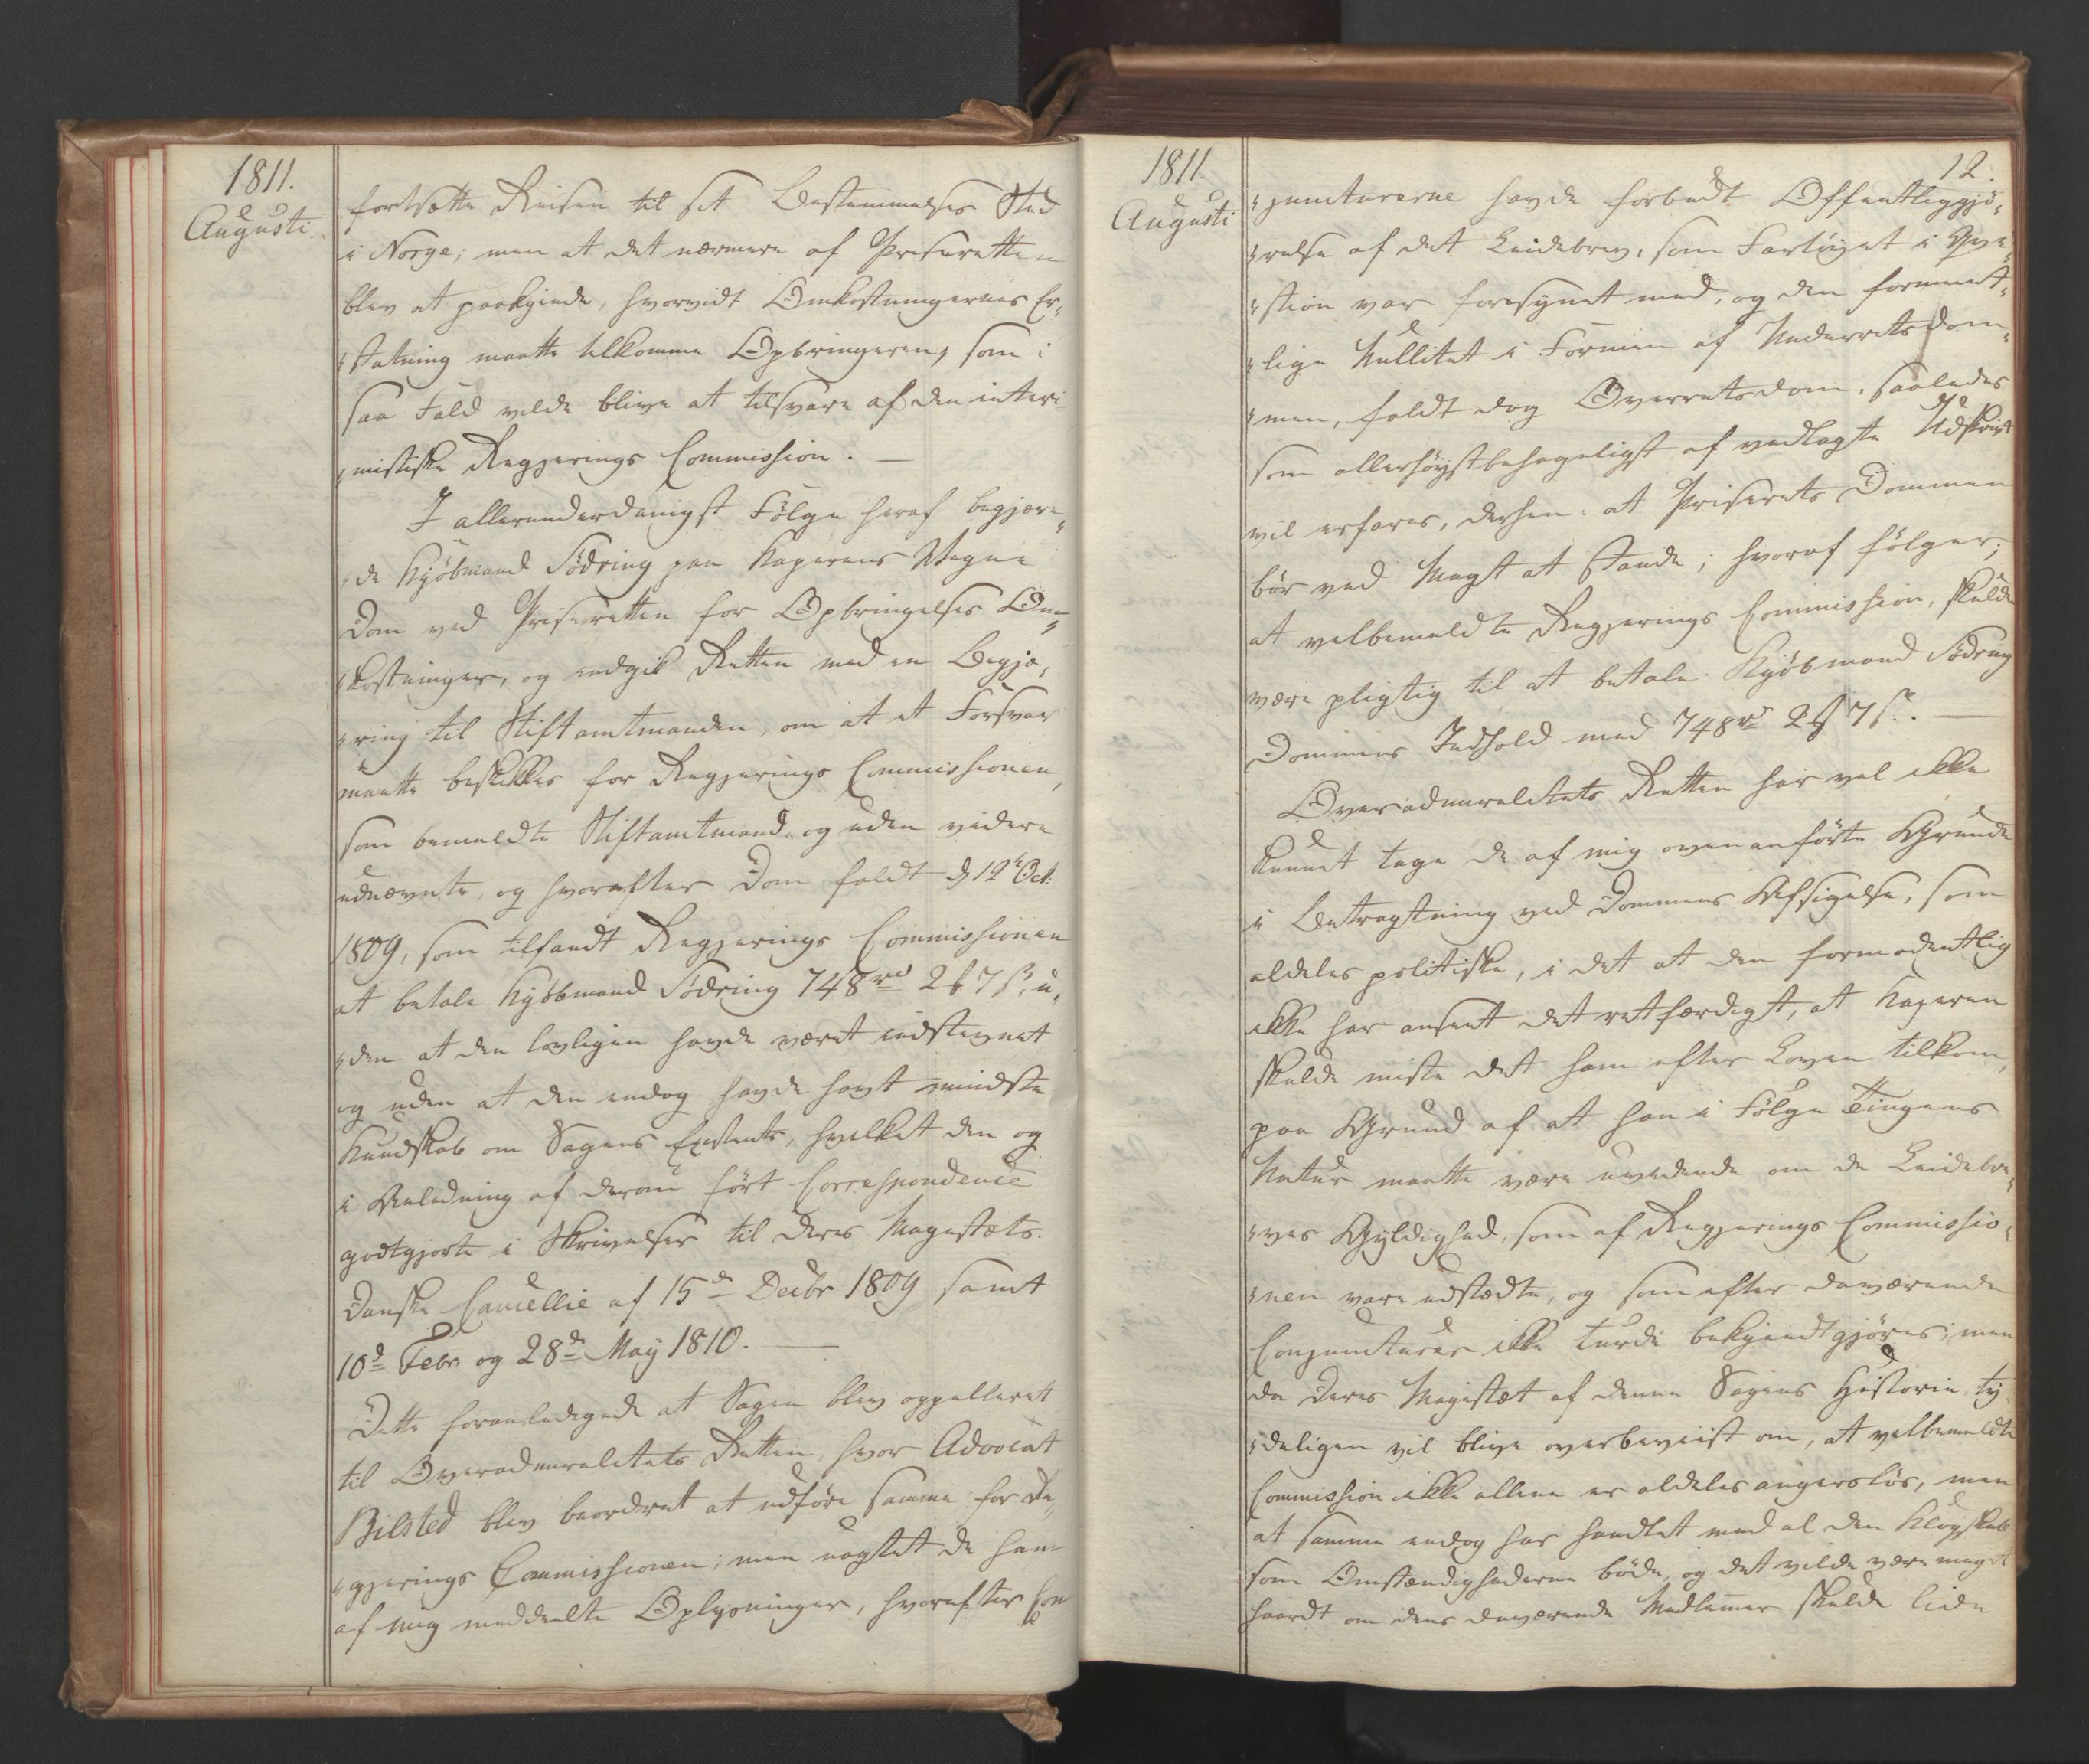 1811.
Augusti.
fortsætte Reisen til sit Bestemmelses Sted
i Norge; men at det nærmere af Priseretten
blev at paakjende, hvorvidt Omkostningernes Er-
statning maatte tilkomme Opbringeren, som i
saa Fald vilde blive at tilsvare af den interi-
mistiske Regjerings Commission. —
I allerunderdanigst Følge heraf begjære-
de Kjøbmand Södring paa Kaperens Vegne
Dom ved Priseretten for Opbringelses Om-
kostninger, og indgik Retten med en Begjæ-
ring til Stiftamtmanden, om at et Forsvar
maatte beskikkes for Regjerings Commissionen,
som bemeldte Stiftamtmand og uden videre
udnævnte, og hvorefter Dom faldt d 12te Oct.
1809, som tilfandt Regjerings Commissionen
at betale Kjøbmand Södring 748 rd 2 ₰ 7 s, u-
den at den lovligen havde været indstevnet
og uden at den endog havde havt mindste
Kundskab om Sagens Existents, hvilket den og
i Anledning af derom ført Correspondence
godtgjorte i Skrivelser til Deres Majestæts
Danske Cancellie af 15de Decbr 1809 samt
10de Febr. og 28de May 1810. —
Dette foranledigede at Sagen blev appelleret
til Overadmiralitets Retten, hvor Advocat
Bilsted blev beordret at udføre samme for Re-
gjerings Commissionen; men uagtet de ham
af mig meddeelte Oplysninger, hvorefter Con
1811
Augusti
12.
juncturerne havde forbudt Offentliggjö-
relse af det Leidebrev, som Fartøiet i Qve-
stion var forsynet med, og den formeent-
lige Nullitet i Formen af Underretsdom-
men, faldt dog Overretsdom, saaledes
som allerhöystbehageligst af vedlagte Udskrift
vil erfares, derhen: at Priserets Dommen
bör ved Magt at stande; hvoraf fölger;
at velbemeldte Regjerings Commission, skulde
være pligtig til at betale Kjøbmand Södring
Dommens Indhold med 748 rd 2 ₰ 7 s. —
Overadmiralitets Retten har vel ikke
kundet tage de af mig ovenanførte Grunde
i Betragtning ved Dommens Afsigelse, som
aldeles politiske, i det at den formodentlig
ikke har anseet det retfærdigt, at Kaperen
skulde miste det ham efter Loven tilkom,
paa Grund af at han i Følge Tingens
Natur maatte være uvidende om de Leidebre-
ves Gyldighed, som af Regjerings Commissio-
nen vare udstædte, og som efter daværende
Conjuncturer ikke turde bekjendtgjöres; men
da Deres Majestæt af denne Sagens Historie ty-
deligen vil blive overbeviist om, at velbemeldte
Commission ikke allene er aldeles angerslös, men
at samme endog har handlet med al den Klogskab
som Omstændighederne böde, og det vilde være meget
haardt om dens daværende Medlemer skulde lide